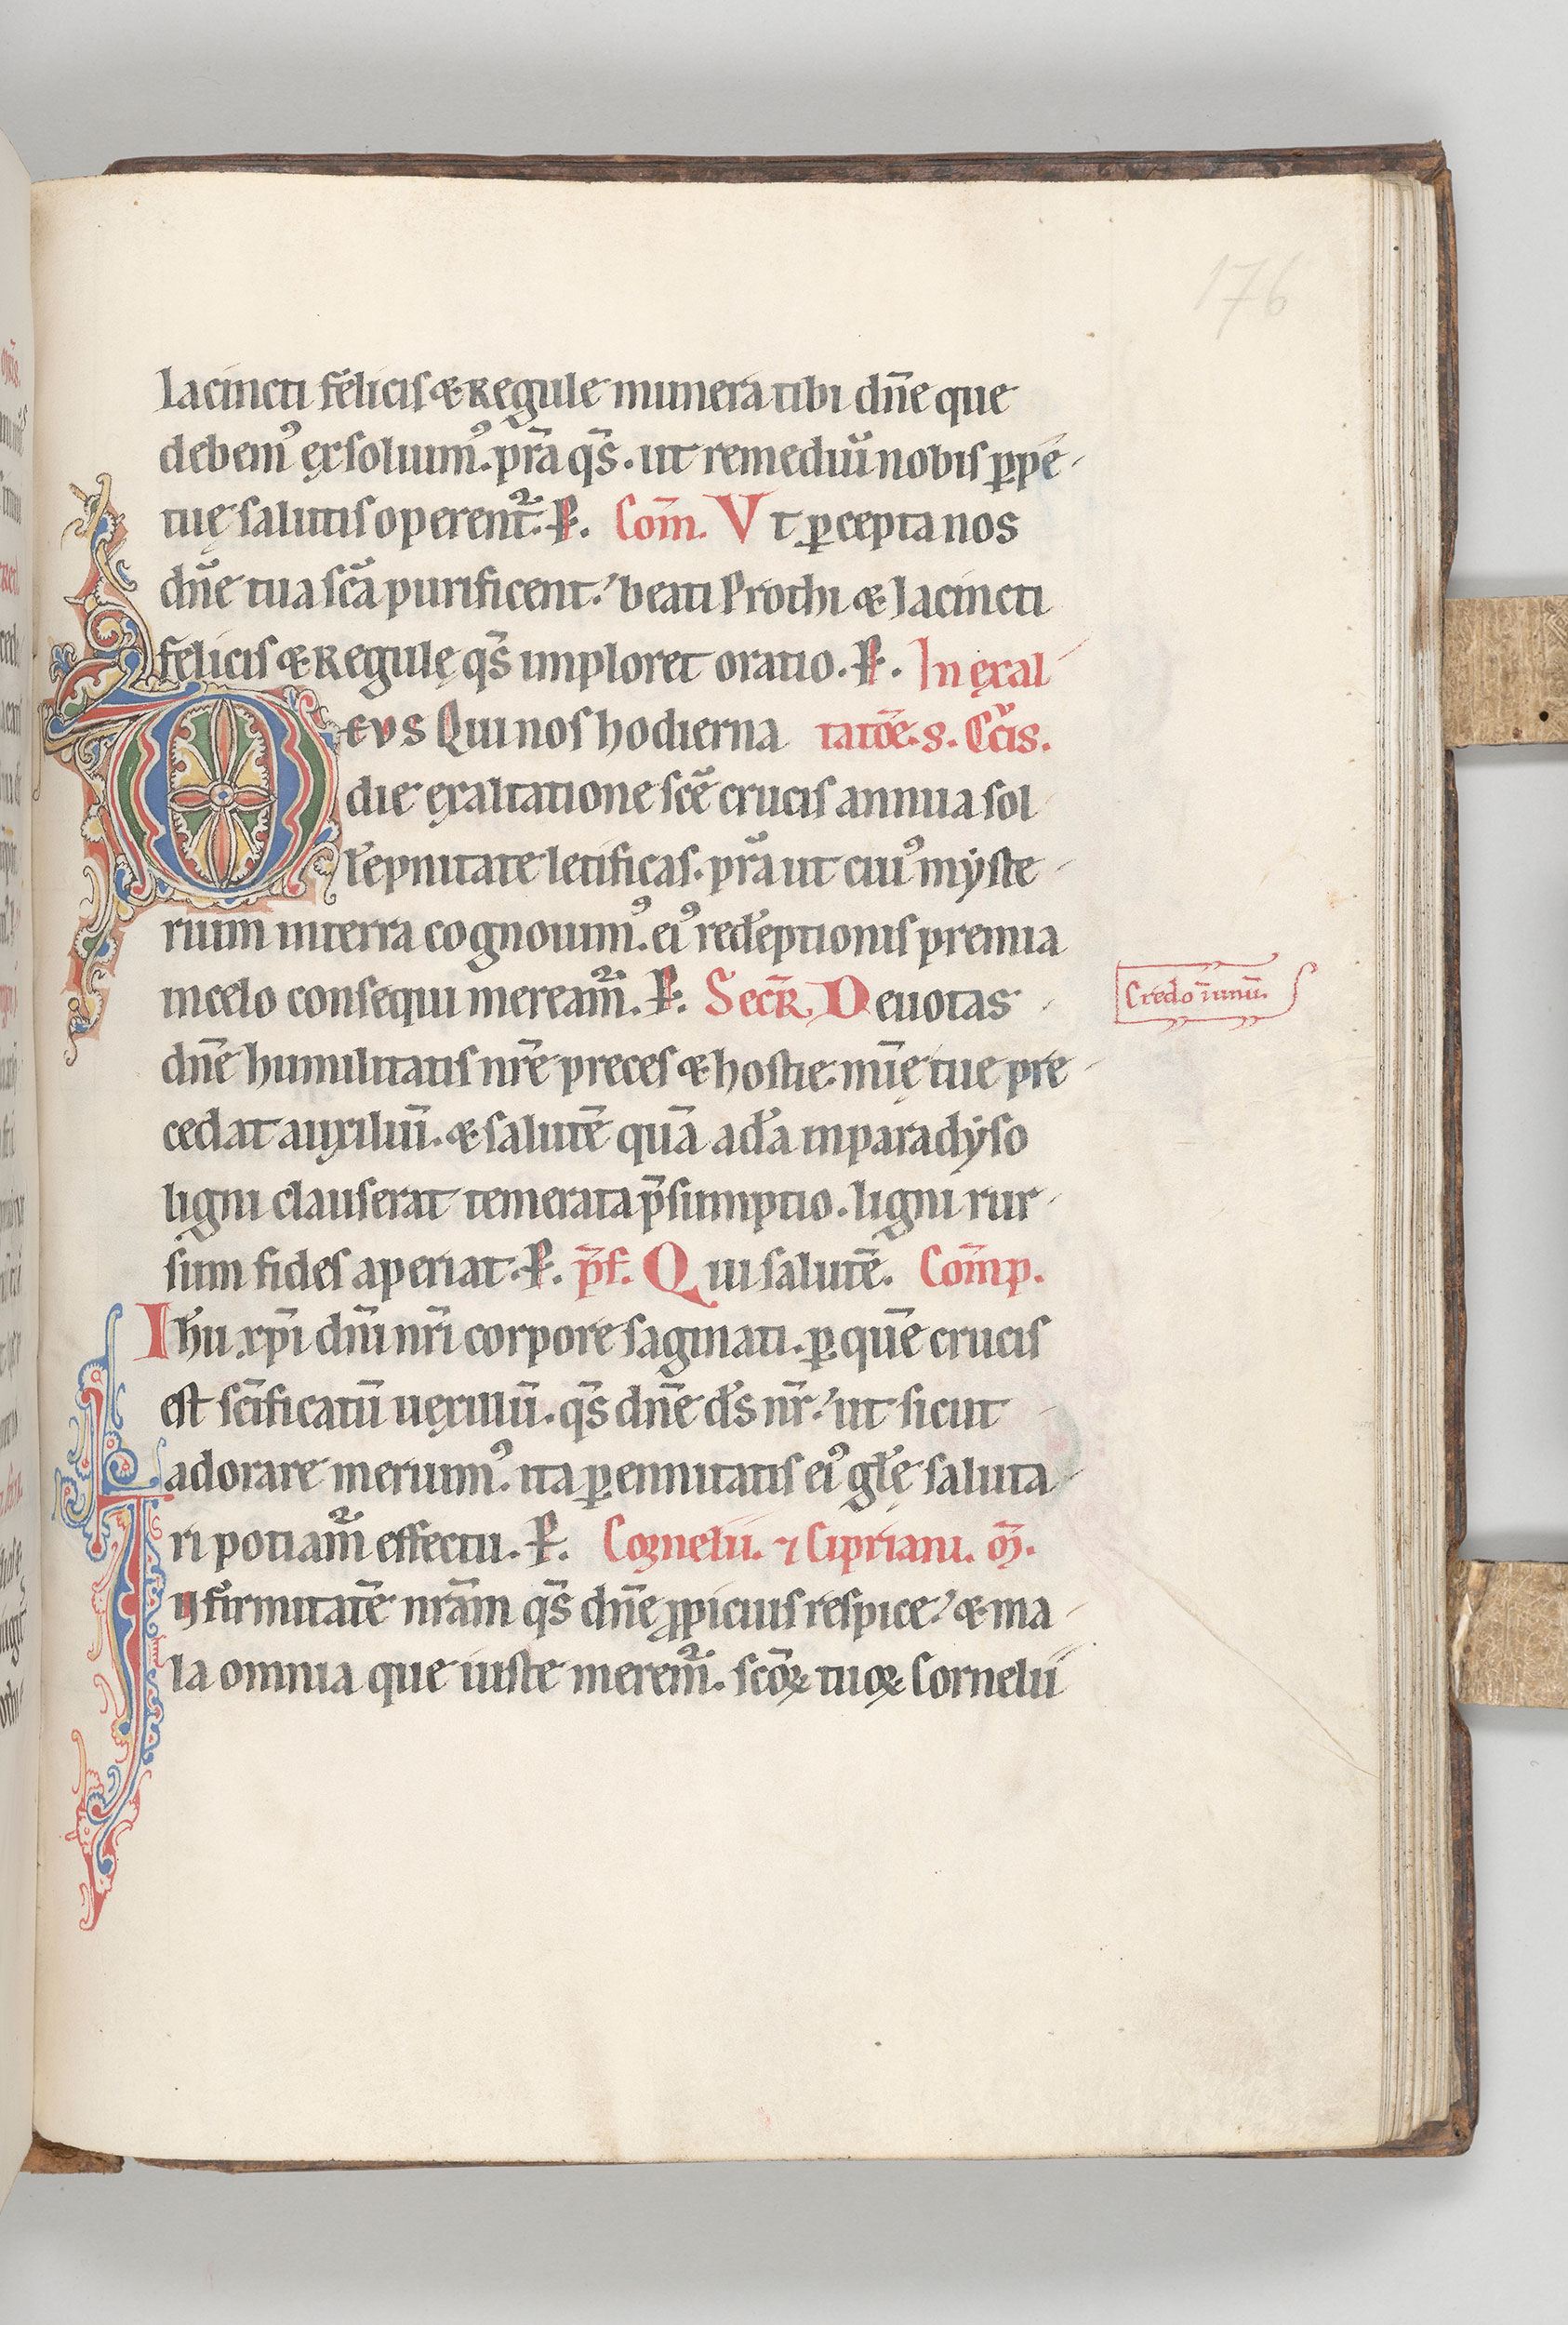 176
Iacincti felicis & Regule munera tibi dn̄e que
debem᾽ exsoluim᾽. prā qs̄. ut remediū nobis ꝑpe-
tuę salutis operent᷑. P. Com̄. Vt ꝑcepta nos
dn̄e tua scā purificent. beati Prothi & Iacincti
felicis & Regulę qs̄ imploret oratio. P. In exal-
DEVS Qui nos hodierna tatōe. s. Cc̄is.
die exaltatione scē crucis annua sol-
lēpnitate letificas. prā ut cui᾽ myste-
rium in terra cognouim᾽. ei᾽ redēptionis premia
in celo consequi meream᷑. P. Secr̄. Deuotas
dn̄e humilitatis nr̄e preces & hostie. mīe tue pre-
cedat auxiliū. & salutē quā adā in paradyso
ligni clauserat temerata p̄sumptio. ligni rur-
sum fides aperiat. P. p̄f. Qui salutē. Com̄p.
Credo ī unū.
Ihū xp̄i dn̄i nr̄i corpore saginati. ꝑ quē crucis
est sc̄ificatū uexillū. qs̄ dn̄e ds̄ nr̄. ut sicut
adorare meruim᾽. ita ꝑennitatis ei᾽ gl̄ę saluta-
ri potiam᷑ effectu. P. Cornelii. ⁊ Cipriani. m̄.
Infirmitatē nr̄am qs̄ dn̄e ꝓpicius respice. & ma-
la omnia que iuste merem᷑. scōꝝ tuoꝝ Cornelii